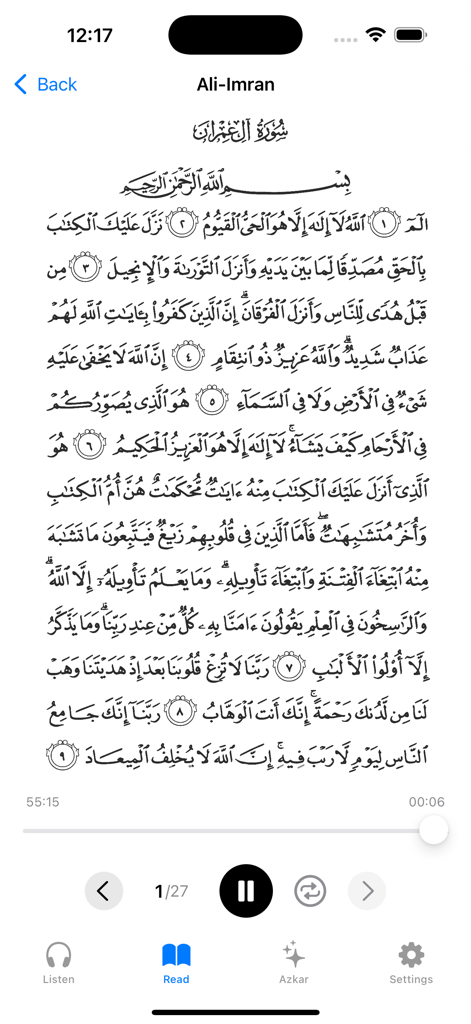 12:17
Back
Ali-Imran
سُورَةُ آلِ عِمْرَان
بِسْمِ اللَّهِ الرَّحْمَٰنِ الرَّحِيمِ
الٓمٓ ١ اللَّهُ لَآ إِلَٰهَ إِلَّا هُوَ الْحَيُّ الْقَيُّومُ ٢ نَزَّلَ عَلَيْكَ الْكِتَٰبَ
بِالْحَقِّ مُصَدِّقًا لِّمَا بَيْنَ يَدَيْهِ وَأَنزَلَ التَّوْرَىٰةَ وَالْإِنجِيلَ ٣ مِن
قَبْلُ هُدًى لِّلنَّاسِ وَأَنزَلَ الْفُرْقَانَ ۗ إِنَّ الَّذِينَ كَفَرُوا۟ بِـَٔايَٰتِ اللَّهِ لَهُمْ
عَذَابٌ شَدِيدٌ ۗ وَاللَّهُ عَزِيزٌ ذُو انتِقَامٍ ٤ إِنَّ اللَّهَ لَا يَخْفَىٰ عَلَيْهِ
شَىْءٌ فِى الْأَرْضِ وَلَا فِى السَّمَآءِ ٥ هُوَ الَّذِى يُصَوِّرُكُمْ
فِى الْأَرْحَامِ كَيْفَ يَشَآءُ ۚ لَآ إِلَٰهَ إِلَّا هُوَ الْعَزِيزُ الْحَكِيمُ ٦ هُوَ
الَّذِىٓ أَنزَلَ عَلَيْكَ الْكِتَٰبَ مِنْهُ ءَايَٰتٌ مُّحْكَمَٰتٌ هُنَّ أُمُّ الْكِتَٰبِ
وَأُخَرُ مُتَشَٰبِهَٰتٌ ۖ فَأَمَّا الَّذِينَ فِى قُلُوبِهِمْ زَيْغٌ فَيَتَّبِعُونَ مَا تَشَٰبَهَ
مِنْهُ ابْتِغَآءَ الْفِتْنَةِ وَابْتِغَآءَ تَأْوِيلِهِۦ ۗ وَمَا يَعْلَمُ تَأْوِيلَهُۥٓ إِلَّا اللَّهُ ۗ
وَالرَّٰسِخُونَ فِى الْعِلْمِ يَقُولُونَ ءَامَنَّا بِهِۦ كُلٌّ مِّنْ عِندِ رَبِّنَا ۗ وَمَا يَذَّكَّرُ
إِلَّآ أُو۟لُوا۟ الْأَلْبَٰبِ ٧ رَبَّنَا لَا تُزِغْ قُلُوبَنَا بَعْدَ إِذْ هَدَيْتَنَا وَهَبْ
لَنَا مِن لَّدُنكَ رَحْمَةً ۚ إِنَّكَ أَنتَ الْوَهَّابُ ٨ رَبَّنَآ إِنَّكَ جَامِعُ
النَّاسِ لِيَوْمٍ لَّا رَيْبَ فِيهِ ۚ إِنَّ اللَّهَ لَا يُخْلِفُ الْمِيعَادَ ٩
55:15 00:06
1/27
Listen Read Azkar Settings